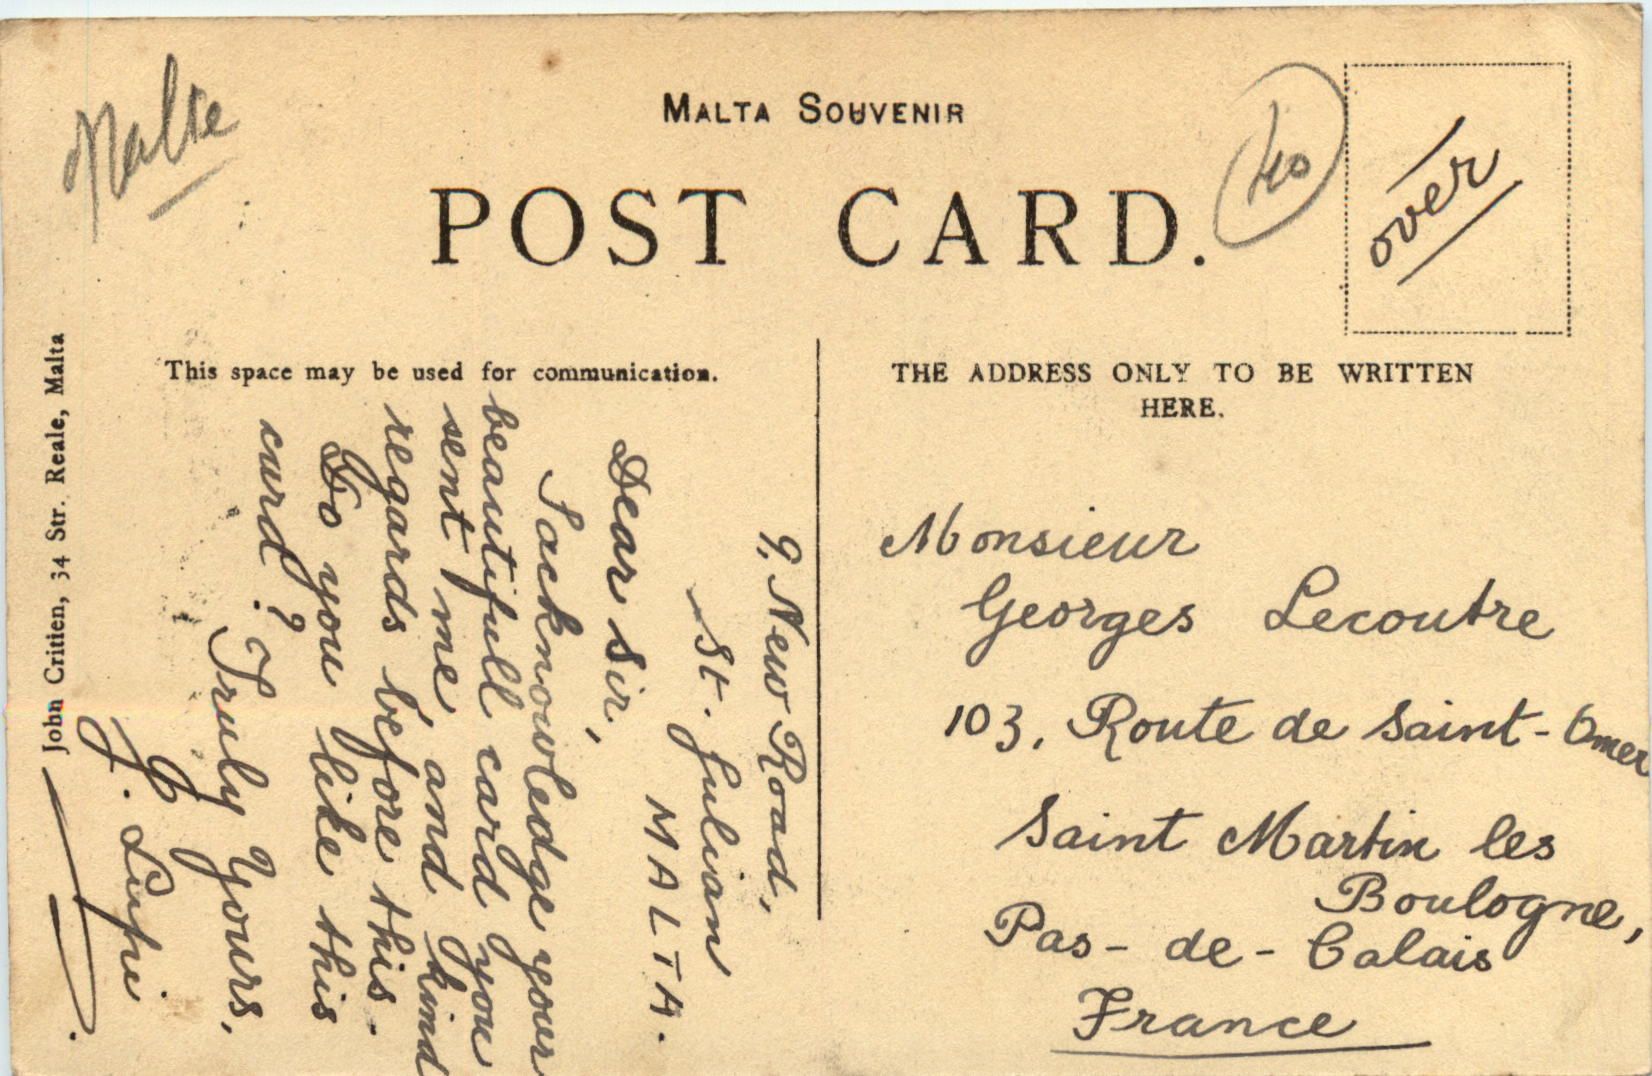 Malte
MALTA SOUVENIR
40
over
POST CARD.
This space may be used for communication.
THE ADDRESS ONLY TO BE WRITTEN
HERE.
9, New Road,
St. Julian
MALTA.
Dear Sir,
I acknowledge your
beautifull card you
sent me and kind
regards before this.
Do you like this
card? Truly Yours,
J. Lupi
John Critien, 34 Str. Reale, Malta
Monsieur
Georges Lecoutre
103, Route de Saint-Omer
Saint Martin les
Boulogne,
Pas-de-Calais
France